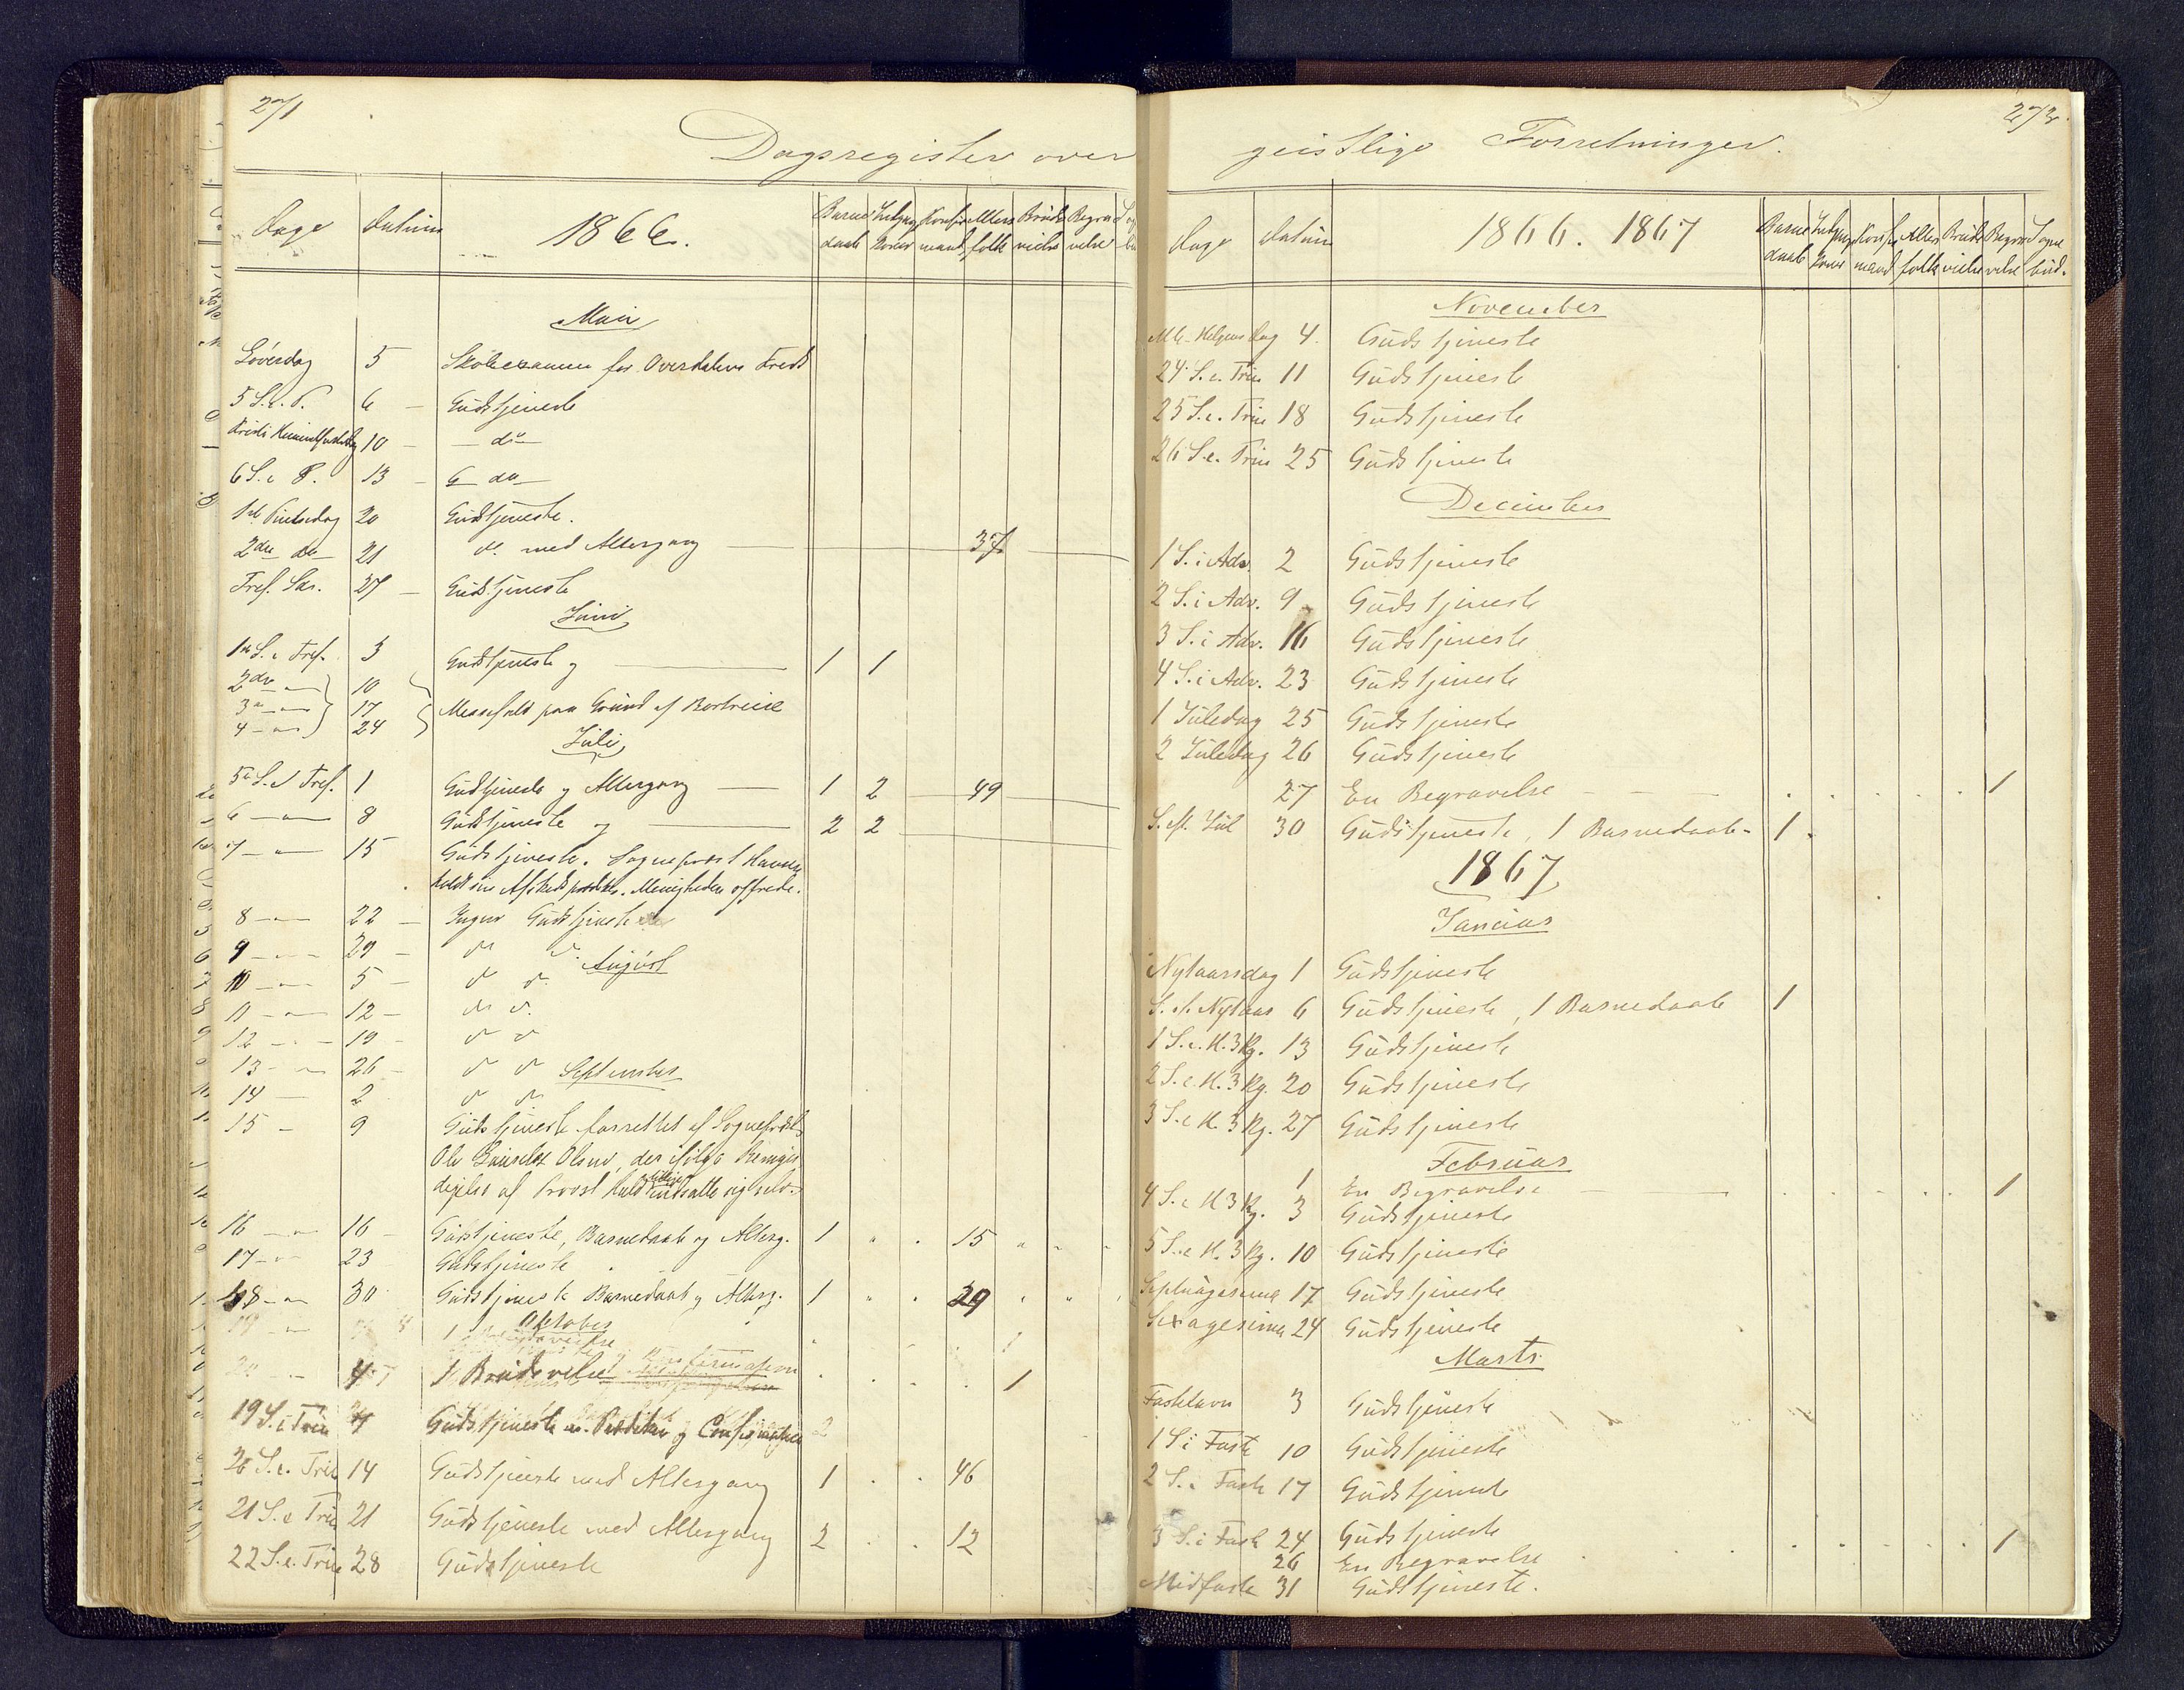 271
Dagsregister over
Dage Datum 1866. Barnedaab Konfirmand Alterfolk Brudevielse Begravelse
Mai
Löverdag 5 Skoleexamen for Overhalvens Kreds
5 S. e. P. 6 Gudstjeneste
Kristi Himmelfartsdag 10 — do —
6 S. e. P. 13 — do —
1ste Pintsedag 20 Gudstjeneste.
2den do 21 do. med Altergang 37
Tref. Søn. 27 Gudstjeneste
Juni
1ste S. e. Tref. 3 Gudstjeneste og 1 1
2den — 10
3die — 17 Messefald paa Grund af Bortreise
4 — 24
Juli
5te S. e. Tref. 1 Gudstjeneste og Altergang 1 2 49
6 — 8 Gudstjeneste og 2 2
7 — 15 Gudstjeneste. Sognepræst Hansen
holdt sin Afskedspræken. Menigheden offrede.
8 — 22 Ingen Gudstjeneste
9 — 29 do do.
August
10 — 5 do do.
11 — 12 do do.
12 — 19 do do
13 — 26 do do
September
14 — 2 do do
15 — 9 Gudstjeneste forrettet af Sognepræst
Ole Olsen, der ifölge Bemyn-
digelse af Provst indsatte sig selv.
16 — 16 Gudstjeneste, Barnedaab og Alterg. 1 " . 15 " . .
17 — 23 Gudstjeneste
18 — 30 Gudstjeneste Barnedaab og Alterg. 1 " . 29 . " .
Oktober
4 1 Brudevielse 1
19 S. e. Trin 7 Gudstjeneste m. Prædiken og Confirmation 2
20 S. e. Trin 14 Gudstjeneste med Altergang 1 . . 46
21 S. e. Trin 21 Gudstjeneste med Altergang 2 . . 12
22 S. e. Trin 28 Gudstjeneste
geistlige Forretninger.
Dage Datum 1866. 1867 Barnedaab Konfirmand Alterfolk Brudevielse Begravelse Sognebud.
November
Alle Helgens Dag 4. Gudstjeneste
24 S. e. Trin 11 Gudstjeneste
25 S. e. Trin 18 Gudstjeneste
26 S. e. Trin 25 Gudstjeneste
December
1 S. i Adv. 2 Gudstjeneste
2 S. i Adv. 9 Gudstjeneste
3 S. i Adv. 16 Gudstjeneste
4 S. i Adv. 23 Gudstjeneste
1 Juledag 25 Gudstjeneste
2 Juledag 26 Gudstjeneste
27 En Begravelse — — — . . . . . 1
S. e. Jul 30 Gudstjeneste, 1 Barnedaab - 1 .
1867
Januar
Nytaarsdag 1 Gudstjeneste
S. e. Nytaar 6 Gudstjeneste, 1 Barnedaab 1
1 S. e. H. 3 Kg. 13 Gudstjeneste
2 S. e. H. 3 Kg. 20 Gudstjeneste
3 S. e. H. 3 Kg. 27 Gudstjeneste
Februar
1 En Begravelse — — . . . . . 1
4 S. e. H 3 Kg. 3 Gudstjeneste
5 S. e. H. 3 Kg. 10 Gudstjeneste
Septuagesima 17 Gudstjeneste
Sexagesima 24 Gudstjeneste
Marts
Fastelavn 3 Gudstjeneste
1 S. i Faste 10 Gudstjeneste
2 S. i Faste 17 Gudstjeneste
3 S. i Faste 24 Gudstjeneste
26 En Begravelse . . . . . . 1
Midfaste 31 Gudstjeneste.